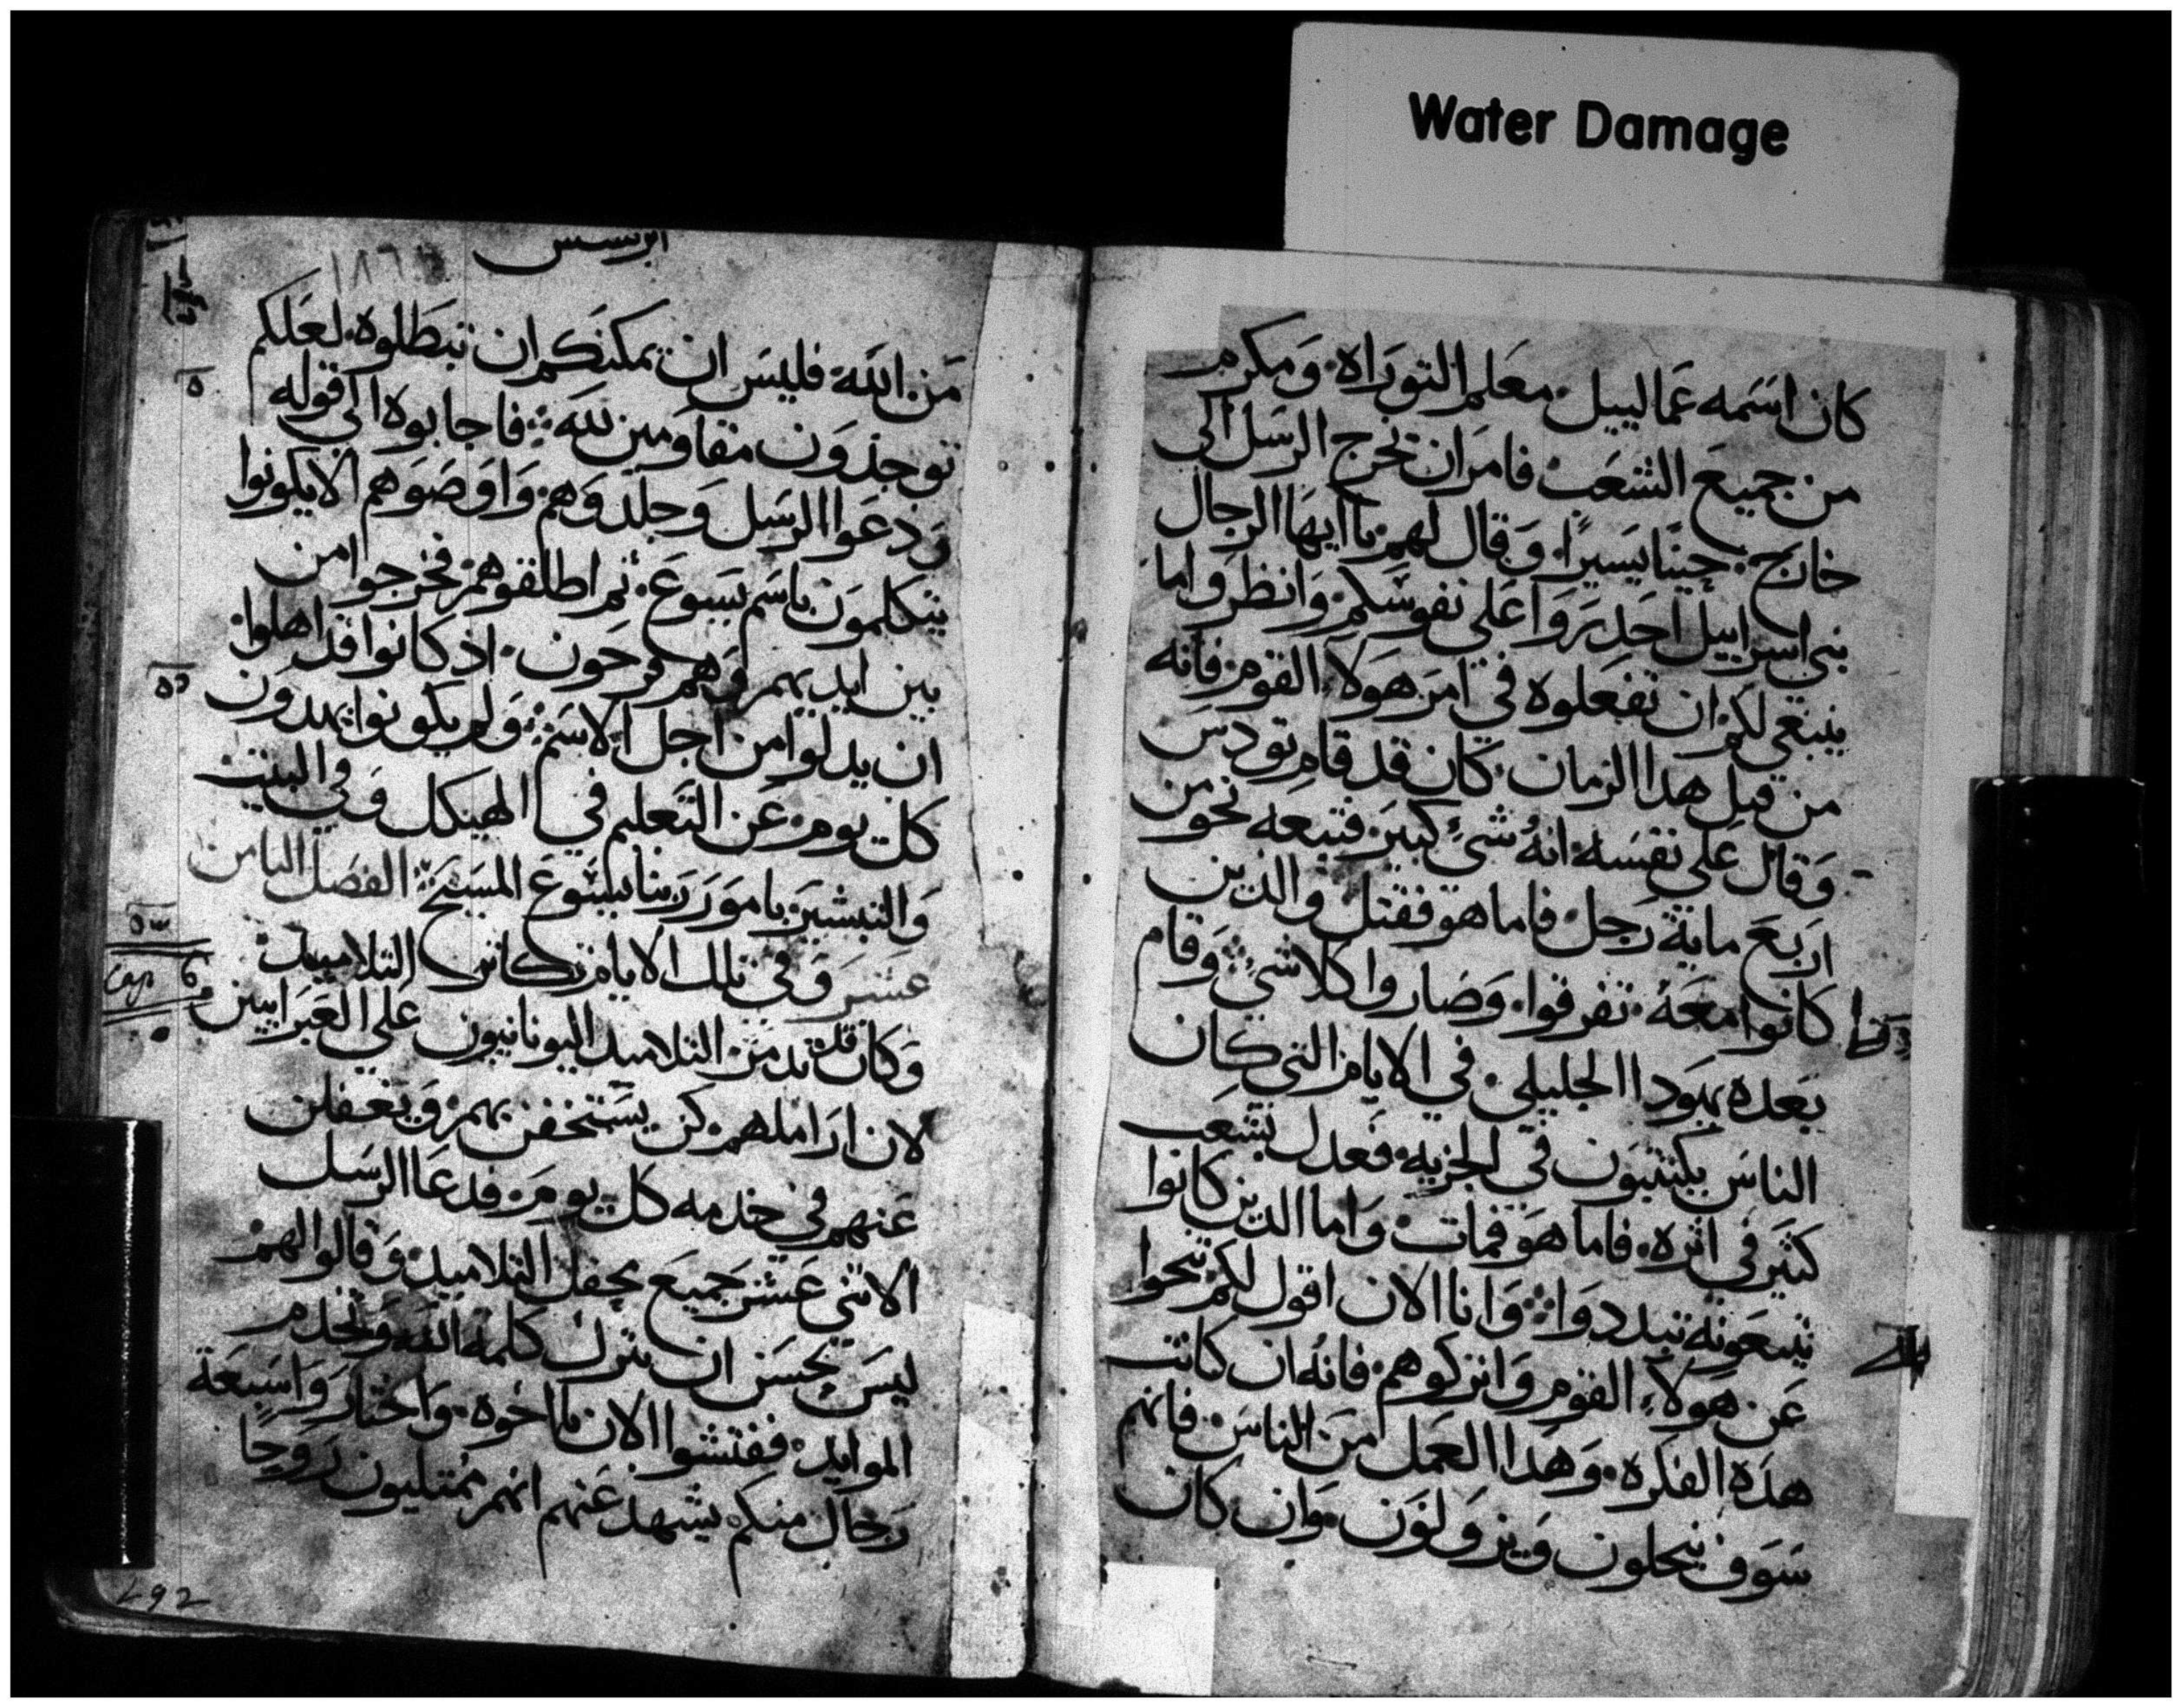 Water Damage
كان اسمه غمالييل معلم التوراه ومكرم
من جميع الشعب فامر ان تخرج الرسل الى
خارج حينًا يسيرًا وقال لهم يا ايها الرجال
بني اسراييل احدروا على نفوسكم وانظروا ما
ينبغي لكم ان تفعلوه في امر هولاء القوم فانه
من قبل هدا الزمان كان قد قام تودس
وقال على نفسه انه شيء كبير فتبعه نحو من
اربع ماية رجل فاما هو فقتل والدين
كانوا معه تفرقوا وصاروا كلا شيء وقام
بعده يهودا الجليلي في الايام التي كان
الناس يكتتبون في الجزيه فعدل بشعب
كثير في اثره فاما هو فمات واما الدين كانوا
يتبعونه تبددوا وانا الان اقول لكم تنحوا
عن هولاء القوم واتركوهم فانه ان كانت
هده الفكره وهدا العمل من الناس فانهم
سوف ينحلون ويزولون وان كان
ابركسس
١٨٦
من الله فليس ان يمكنكم ان تبطلوه لعلكم
توجدون مقاومين لله فاجابوه الى قوله
ودعوا الرسل وجلدوهم واوصوهم الا يكونوا
يتكلمون باسم يسوع ثم اطلقوهم فخرجوا من
بين ايديهم وهم فرحون اد كانوا قد اهلوا
ان يدلوا من اجل الاسم ولم يكونوا يهدون
كل يوم عن التعليم في الهيكل وفي البيت
والتبشير بامور ربنا يسوع المسيح الفصل الثامن
عشر وفي تلك الايام تكاثر التلاميد
Cap 6
وكان قد تدمر التلاميد اليونانيون على العبرانيين
لان اراملهم كن يستخفن بهم ويغفلن
عنهم في خدمه كل يوم فدعا الرسل
الاثني عشر جميع محفل التلاميد وقالوا لهم
ليس يحسن ان نترك كلمة الله ونخدم
الموايد ففتشوا الان يا اخوه واختاروا سبعة
رجال منكم يشهد عنهم انهم ممتليون روحا
292